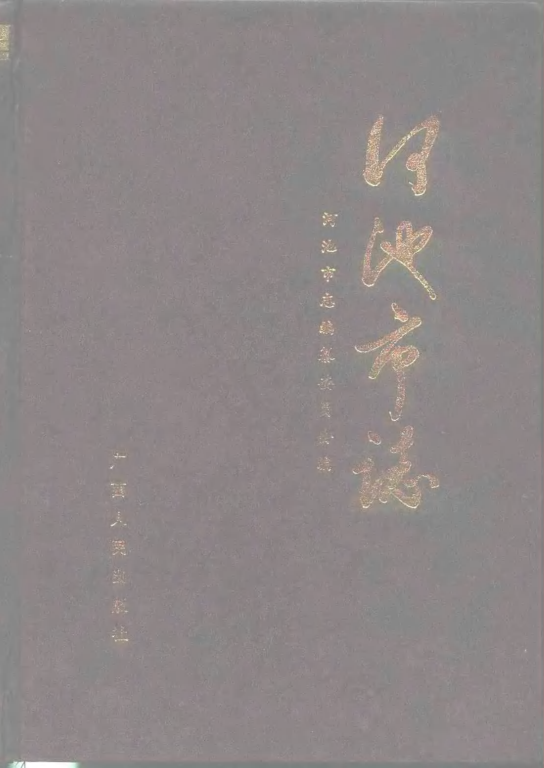 河池市誌
河池市志编纂委员会编
广西人民出版社